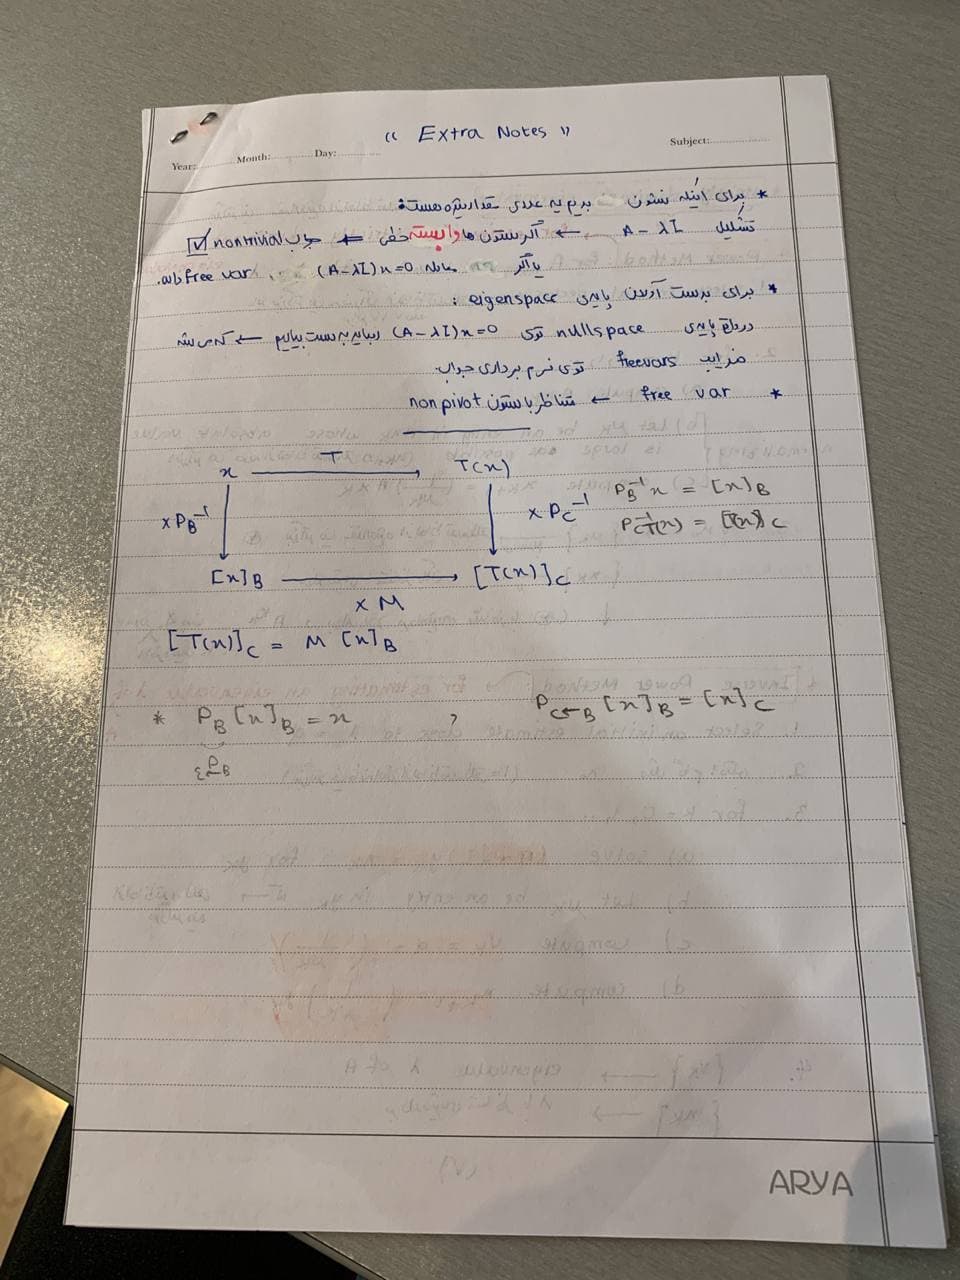 « Extra Notes »
Year: Month: Day: Subject:
* برای اینکه نشون بدیم یه عددی مقدار ویژه هست:
تشکیل A - λI ← اگر ستون ها وابسته خطی ← جواب nontrivial ☑
یا اگر معادله (A-λI)x=0 free var داشت.
* برای بدست آوردن پایه‌ی eigenspace :
در واقع پایه‌ی nullspace توی (A-λI)x=0 رو باید به دست بیاریم ← که می شه
ضرایب freevars توی فرم برداری جواب.
* free var ← متناظر با ستون nonpivot
x T T(x)
x P_B⁻¹ x P_C⁻¹ P_B⁻¹x = [x]_B
P_C⁻¹T(x) = [T(x)]_C
[x]_B [T(x)]_C
x M
[T(x)]_C = M [x]_B
* P_B [x]_B = x , P_C←B [x]_B = [x]_C
P_ε←B
ARYA